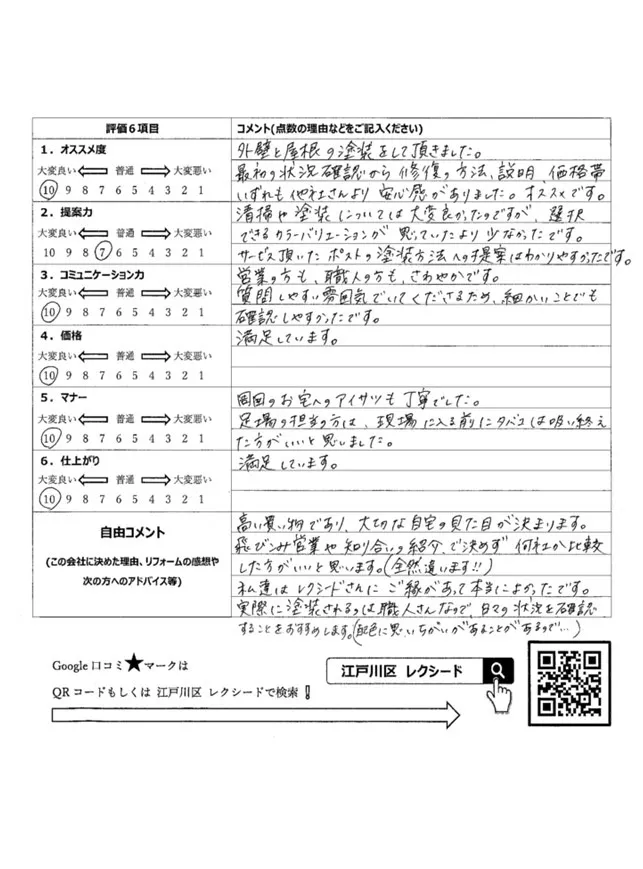 評価6項目
コメント(点数の理由などをご記入ください)
1．オススメ度
大変良い 普通 大変悪い
10 9 8 7 6 5 4 3 2 1
外壁と屋根の塗装をして頂きました。
最初の状況確認から修復の方法、説明、価格帯
いずれも他社さんより安心感がありました。オススメです。
2．提案力
大変良い 普通 大変悪い
10 9 8 7 6 5 4 3 2 1
清掃や塗装については大変良かったのですが、選択
できるカラーバリエーションが思っていたより少なかったです。
サービス頂いたポストの塗装方法への提案はわかりやすかったです。
3．コミュニケーション力
大変良い 普通 大変悪い
10 9 8 7 6 5 4 3 2 1
営業の方も、職人の方も、さわやかです。
質問しやすい雰囲気でいてくださるため、細かいことでも
確認しやすかったです。
4．価格
大変良い 普通 大変悪い
10 9 8 7 6 5 4 3 2 1
満足しています。
5．マナー
大変良い 普通 大変悪い
10 9 8 7 6 5 4 3 2 1
周囲のお宅へのアイサツも丁寧でした。
足場の担当の方は、現場に入る前にタバコは吸い終え
た方がいいと思いました。
6．仕上がり
大変良い 普通 大変悪い
10 9 8 7 6 5 4 3 2 1
満足しています。
自由コメント
(この会社に決めた理由、リフォームの感想や
次の方へのアドバイス等)
高い買い物であり、大切な自宅の見た目が決まります。
飛びこみ営業や知り合いの紹介で決めず何社か比較
した方がいいと思います。(全然違います!!)
私達はレクシードさんにご縁があって本当によかったです。
実際に塗装されるのは職人さんなので、日々の状況を確認
することをおすすめします。(配色に思いちがいがあることがあるので…)
Google口コミ★マークは
QRコードもしくは 江戸川区 レクシードで検索！
江戸川区 レクシード